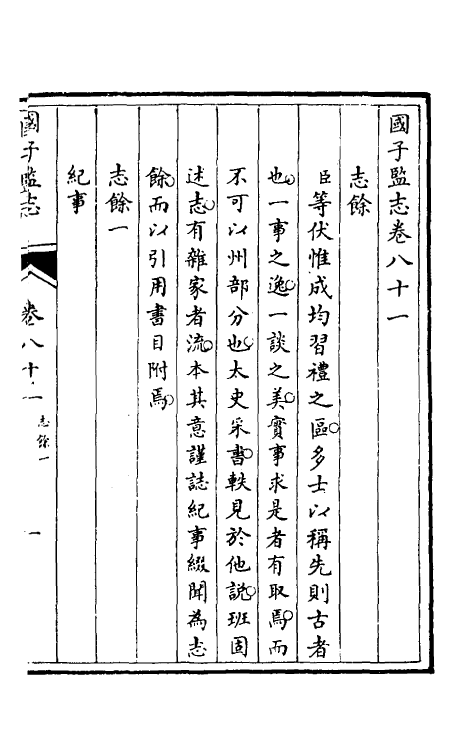 國子監志卷八十一
志餘
臣等伏惟成均習禮之區多士以稱先則古者
也一事之逸一談之美實事求是者有取焉而
不可以州部分也太史采書軼見於他說班固
述志有雜家者流本其意謹誌紀事綴聞為志
餘而以引用書目附焉
志餘一
紀事
國子監志 卷八十一 志餘一 一